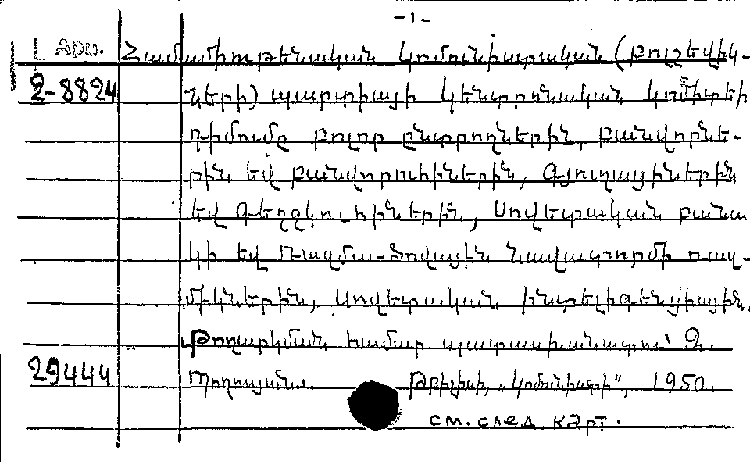 -1-
Арм. Համամիութենական Կոմունիստական (բոլշևիկ-
2-8824 ների) պարտիայի Կենտրոնական Կոմիտեի
դիմումը բոլոր ընտրողներին, բանվորնե-
րին եվ բանվորուհիներին, Գյուղացիներին
եվ Գեղջկուհիներին, Սովետական բանա
կի եվ Ռազմա-Ծովային Նավատորմի ռազ-
միկներին, Սովետական ինտելիգենցիային,
Թողարկման համար պատասխանատու՝ Զ.
29444 Պողոսյան. Թբիլիսի, „Կոմունիստի", 1950.
см. след. карт.